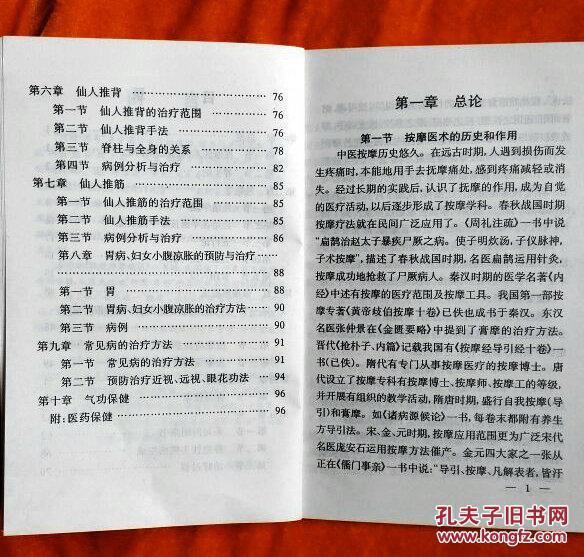 第六章 仙人推背 …………………… 76
第一节 仙人推背的治疗范围 …………… 76
第二节 仙人推背手法 …………………… 76
第三节 脊柱与全身的关系 ……………… 78
第四节 病例分析与治疗 ………………… 82
第七章 仙人推筋 …………………… 85
第一节 仙人推筋的治疗范围 …………… 85
第二节 仙人推筋手法 …………………… 85
第三节 病例分析与治疗 ………………… 86
第八章 胃病、妇女小腹凉胀的预防与治疗 ……
…………………… 88
第一节 胃 …………………… 88
第二节 胃病、妇女小腹凉胀的治疗方法 …… 90
第三节 病例 …………………… 90
第九章 常见病的治疗方法 …………… 91
第一节 常见病的治疗方法 …………… 91
第二节 预防治疗近视、远视、眼花功法 …… 94
第十章 气功保健 …………………… 96
附:医药保健 …………………… 96
第一章 总论
第一节 按摩医术的历史和作用
中医按摩历史悠久。在远古时期,人遇到损伤而发
生疼痛时,本能地用手去抚摩痛处,感到疼痛减轻或消
失。经过长期的实践后,认识了抚摩的作用,成为自觉
的医疗活动,以后逐步形成了按摩学科。春秋战国时期
按摩疗法就在民间广泛应用了。《周礼注疏》一书中说
“扁鹊治赵太子暴疾尸厥之病。使子明炊汤,子仪脉神,
子术按摩”,描述了春秋战国时期,名医扁鹊运用针灸、
按摩成功地抢救了尸厥病人。秦汉时期的医学名著《内
经》中述有按摩的医疗范围及按摩工具。我国第一部按
摩专著《黄帝歧伯按摩十卷》已佚也成书于秦汉。东汉
名医张仲景在《金匮要略》中提到了膏摩的治疗方法。
晋代《抢朴子、内篇》记载我国有《按摩经导引经十卷》一
书(已佚)。隋代有专门从事按摩医疗的按摩博士。唐
代设立了按摩专科有按摩博士、按摩师、按摩工的等级,
并开展有组织的教学活动,隋唐时期,盛行自我按摩(导
引)和膏摩。如《诸病源候论》一书,每卷末都附有养生
方导引法。宋、金、元时期,按摩应用范围更为广泛宋代
名医庞安石运用按摩方法催产。金元四大家之一张从
正在《儒门事亲》一书中说:“导引、按摩、凡解表者,皆汗
— 1 —
孔夫子旧书网